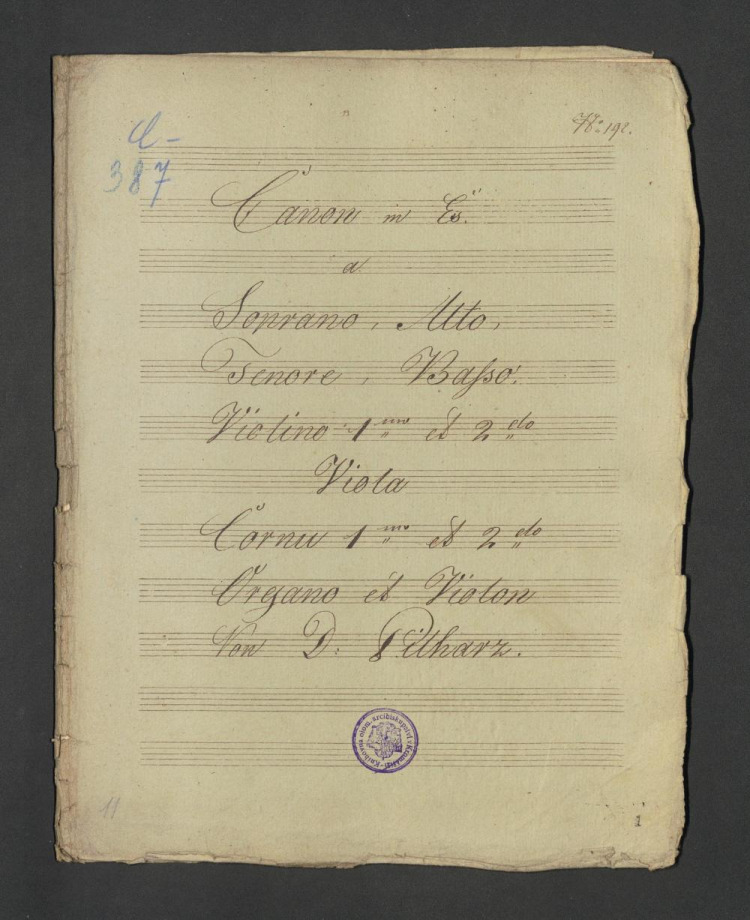 № 192.
A-
387
Canon in Es.
a
Soprano, Alto,
Tenore, Basso.
Violino 1mo et 2do
Viola
Cornu 1mo et 2do
Organo et Violon
Von D: Pilharz.
Knihovna olom. arcibiskupství v Kroměříži
11
1